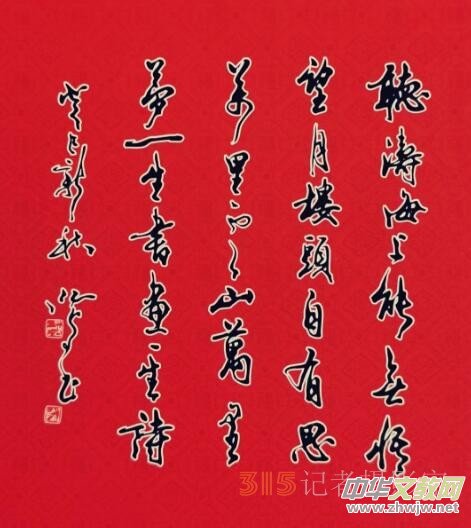 聽濤海上能無悟
望月樓頭自有思
万里山萬里
夢一生書畫一生詩
癸巳新秋
315记者摄影家
中华文教网
www.zhwjw.net